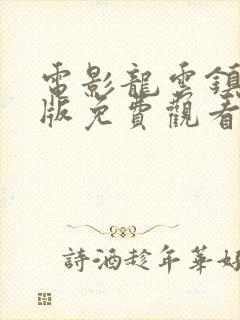 電影龍雲鎮
版免費觀看
詩酒趁年華好